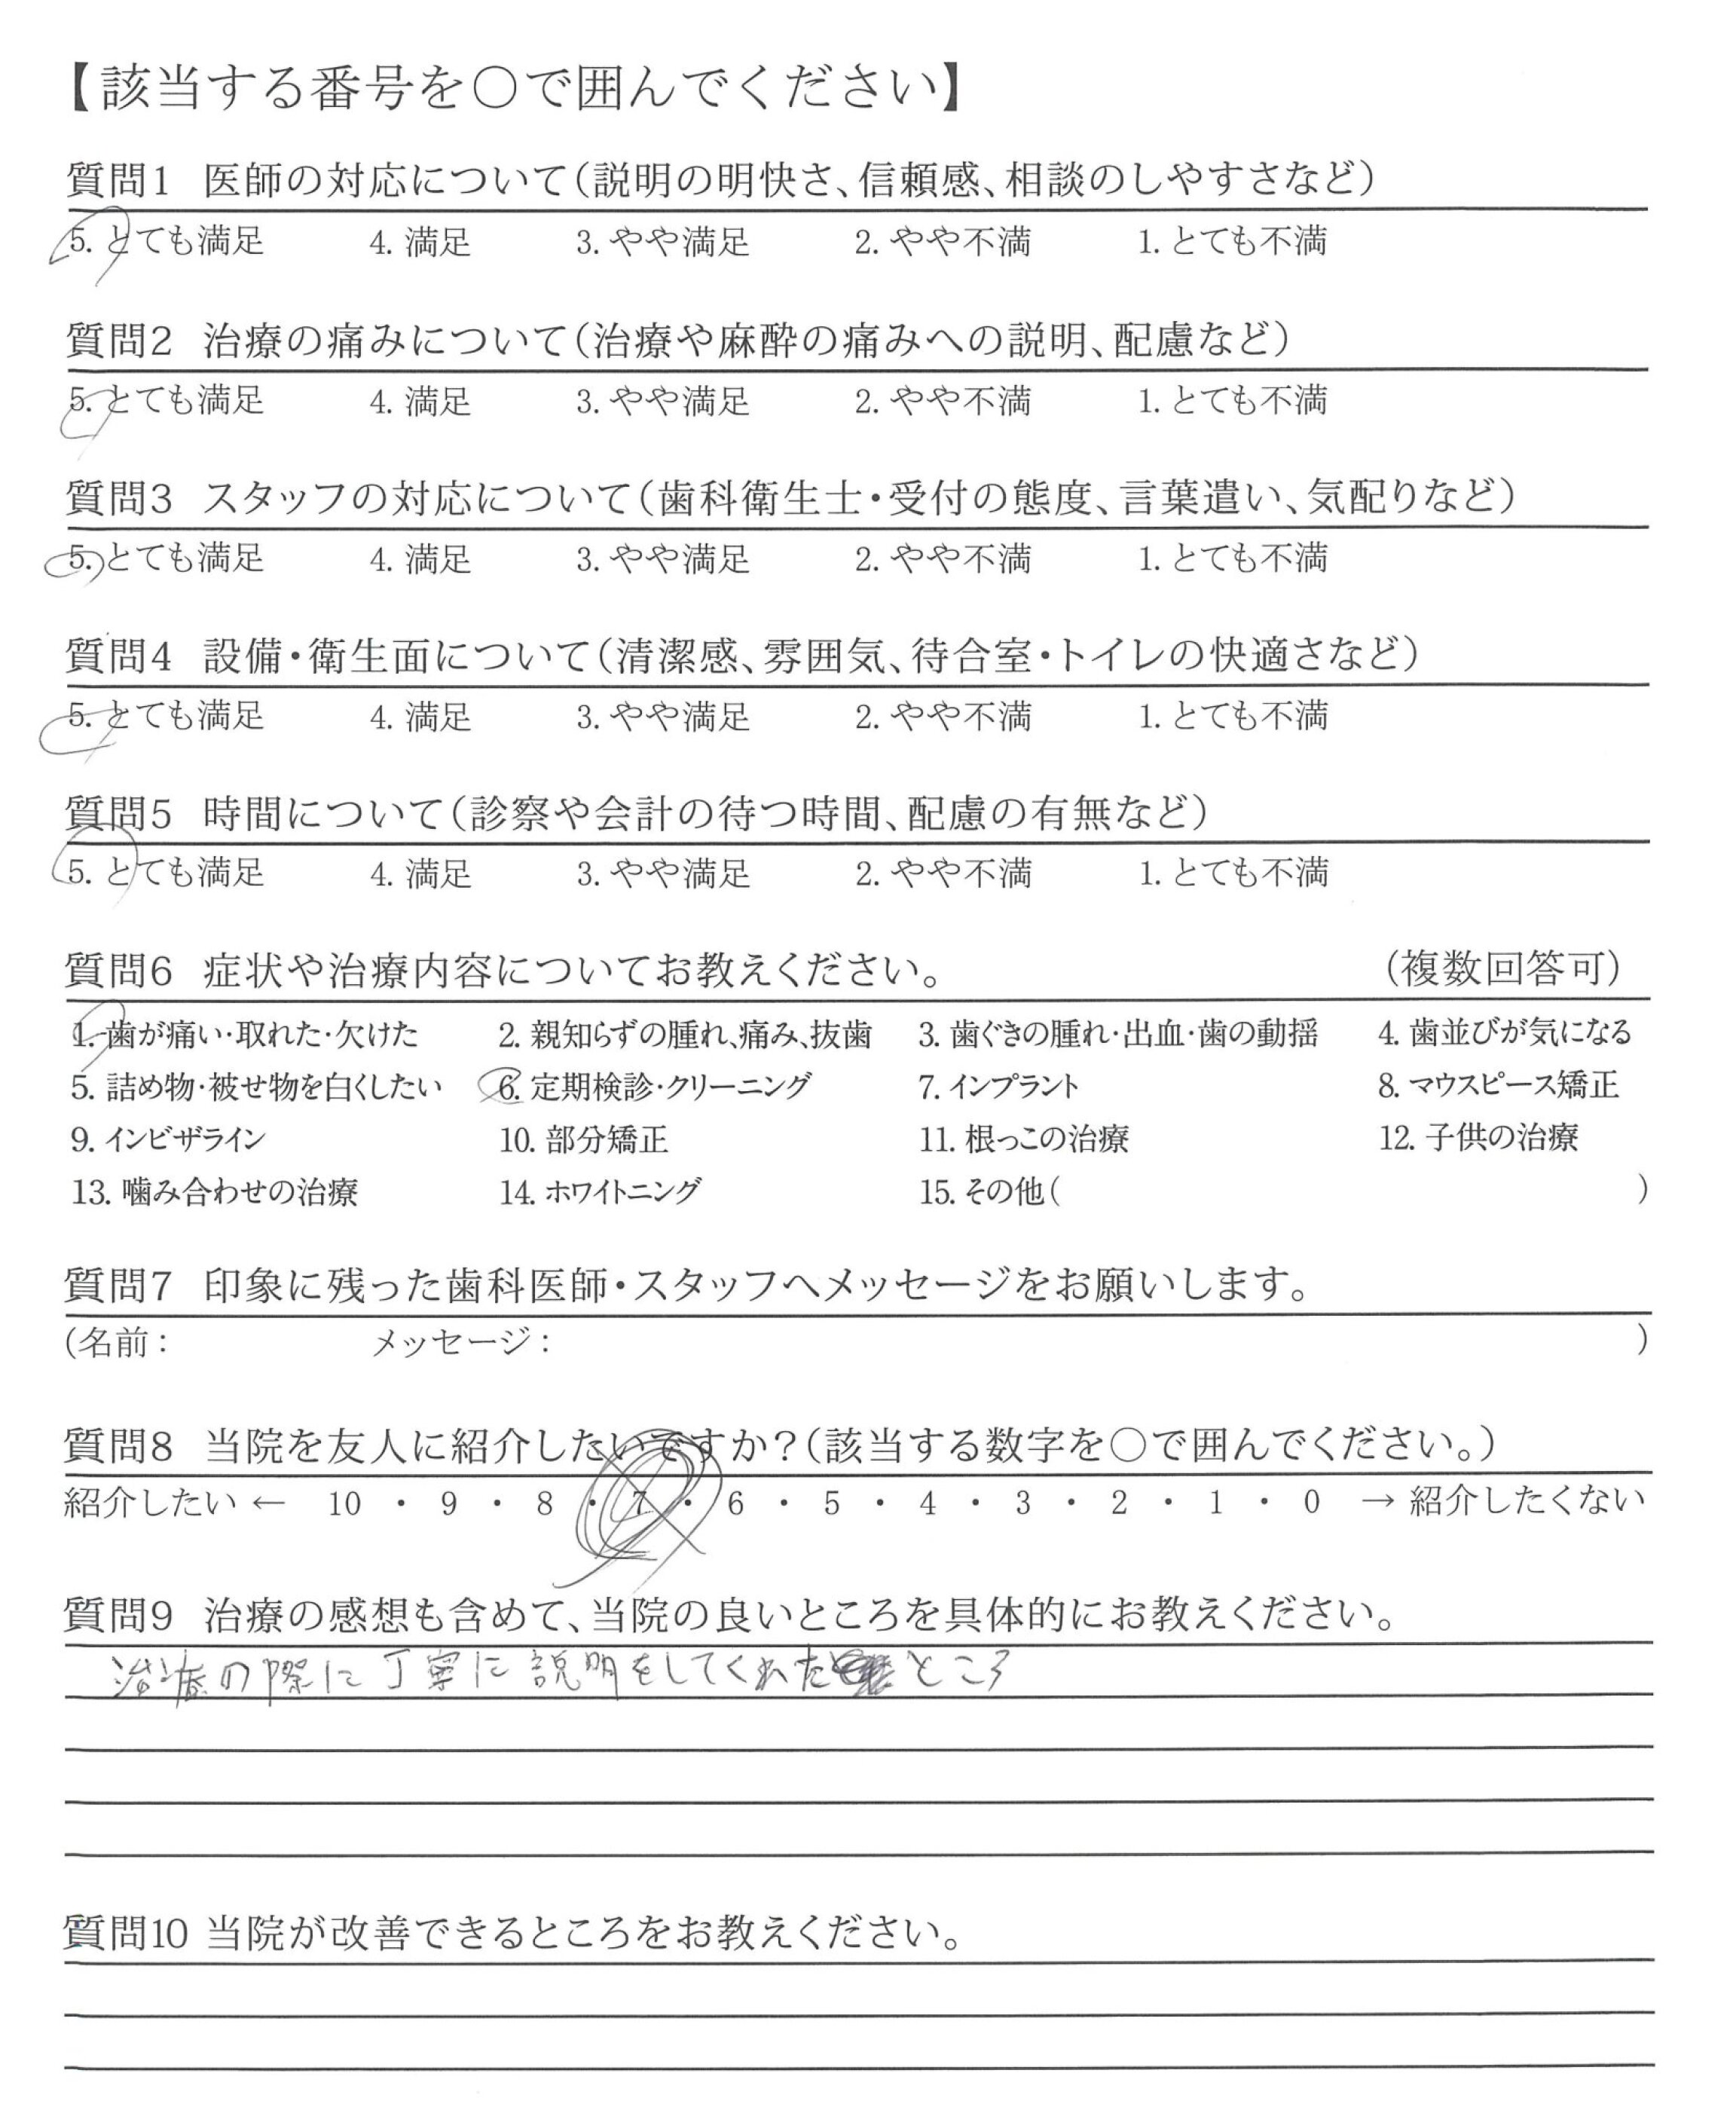 【該当する番号を○で囲んでください】
質問1 医師の対応について(説明の明快さ、信頼感、相談のしやすさなど)
5. とても満足 4. 満足 3. やや満足 2. やや不満 1. とても不満
質問2 治療の痛みについて(治療や麻酔の痛みへの説明、配慮など)
5. とても満足 4. 満足 3. やや満足 2. やや不満 1. とても不満
質問3 スタッフの対応について(歯科衛生士・受付の態度、言葉遣い、気配りなど)
5. とても満足 4. 満足 3. やや満足 2. やや不満 1. とても不満
質問4 設備・衛生面について(清潔感、雰囲気、待合室・トイレの快適さなど)
5. とても満足 4. 満足 3. やや満足 2. やや不満 1. とても不満
質問5 時間について(診察や会計の待つ時間、配慮の有無など)
5. とても満足 4. 満足 3. やや満足 2. やや不満 1. とても不満
質問6 症状や治療内容についてお教えください。 (複数回答可)
1. 歯が痛い・取れた・欠けた 2. 親知らずの腫れ、痛み、抜歯 3. 歯ぐきの腫れ・出血・歯の動揺 4. 歯並びが気になる
5. 詰め物・被せ物を白くしたい 6. 定期検診・クリーニング 7. インプラント 8. マウスピース矯正
9. インビザライン 10. 部分矯正 11. 根っこの治療 12. 子供の治療
13. 噛み合わせの治療 14. ホワイトニング 15. その他( )
質問7 印象に残った歯科医師・スタッフへメッセージをお願いします。
(名前: メッセージ: )
質問8 当院を友人に紹介したいですか?(該当する数字を○で囲んでください。)
紹介したい ← 10 ・ 9 ・ 8 ・ 7 ・ 6 ・ 5 ・ 4 ・ 3 ・ 2 ・ 1 ・ 0 → 紹介したくない
質問9 治療の感想も含めて、当院の良いところを具体的にお教えください。
治療の際に丁寧に説明をしてくれたところ
質問10 当院が改善できるところをお教えください。